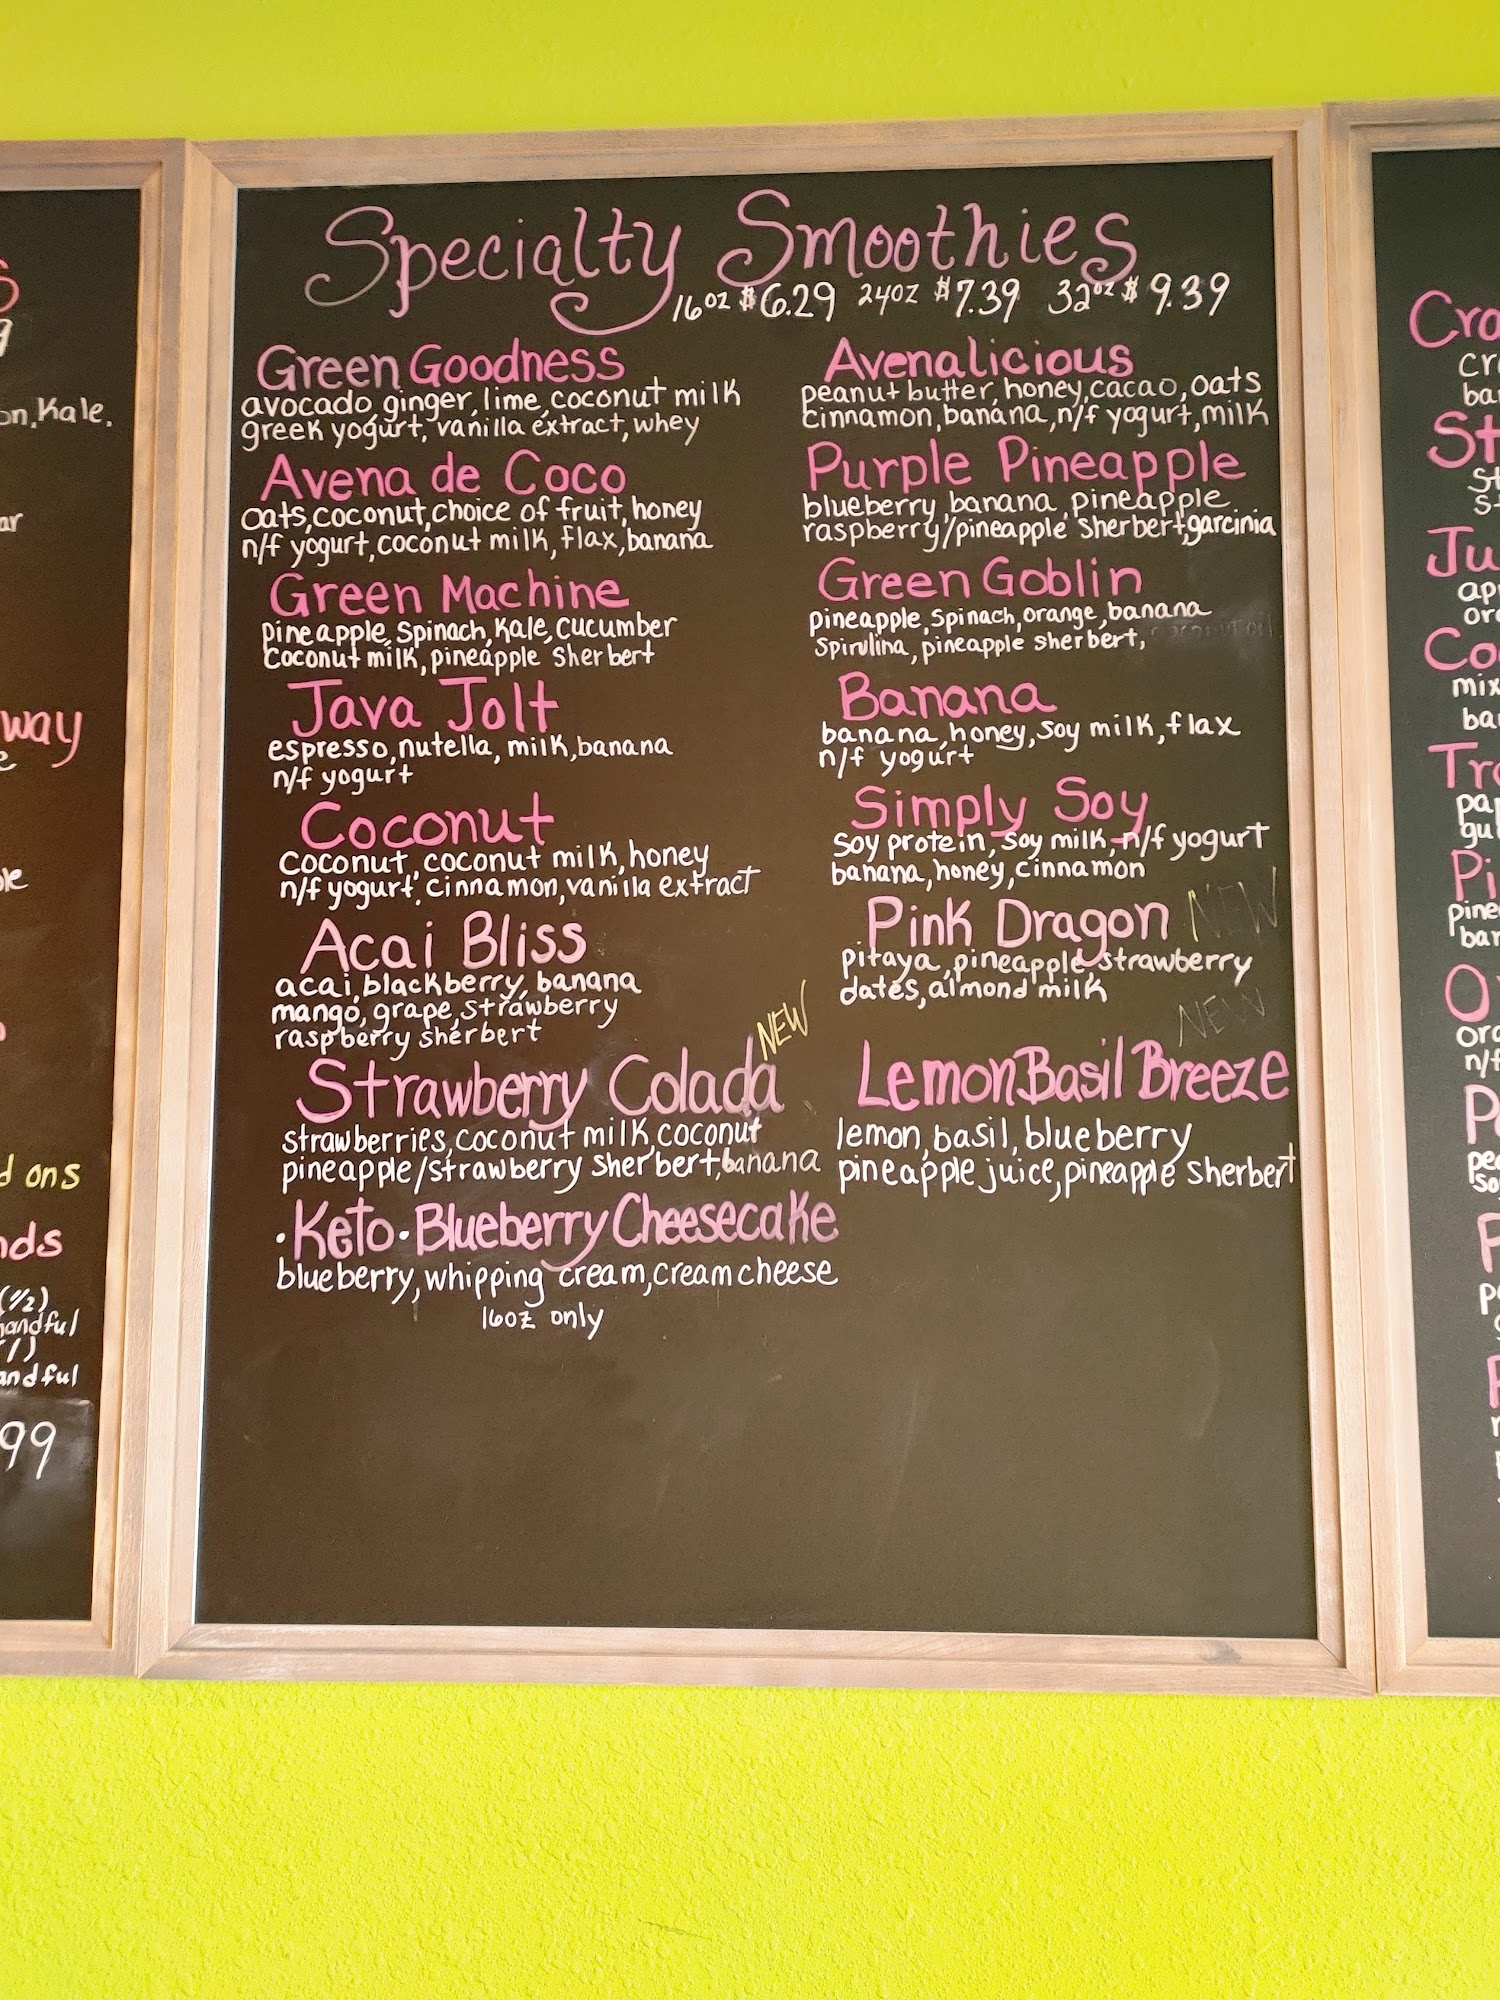 Specialty Smoothies
16oz $6.29 24oz $7.39 32oz $9.39
Green Goodness
avocado, ginger, lime, coconut milk
greek yogurt, vanilla extract, whey
Avena de Coco
oats, coconut, choice of fruit, honey
n/f yogurt, coconut milk, flax, banana
Green Machine
pineapple, spinach, kale, cucumber
coconut milk, pineapple sherbert
Java Jolt
espresso, nutella, milk, banana
n/f yogurt
Coconut
coconut, coconut milk, honey
n/f yogurt, cinnamon, vanilla extract
Acai Bliss
acai, blackberry, banana
mango, grape, strawberry
raspberry sherbert
NEW
Strawberry Colada
strawberries, coconut milk, coconut
pineapple/strawberry sherbert, banana
·Keto·Blueberry Cheesecake
blueberry, whipping cream, cream cheese
16oz only
Avenalicious
peanut butter, honey, cacao, oats
cinnamon, banana, n/f yogurt, milk
Purple Pineapple
blueberry, banana, pineapple
raspberry/pineapple sherbert, garcinia
Green Goblin
pineapple, spinach, orange, banana
spirulina, pineapple sherbert,
Banana
banana, honey, soy milk, flax
n/f yogurt
Simply Soy
soy protein, soy milk, n/f yogurt
banana, honey, cinnamon
Pink Dragon NEW
pitaya, pineapple, strawberry
dates, almond milk
NEW
Lemon Basil Breeze
lemon, basil, blueberry
pineapple juice, pineapple sherbert
Kale,
way
ons
(1/2)
handful
(1)
99